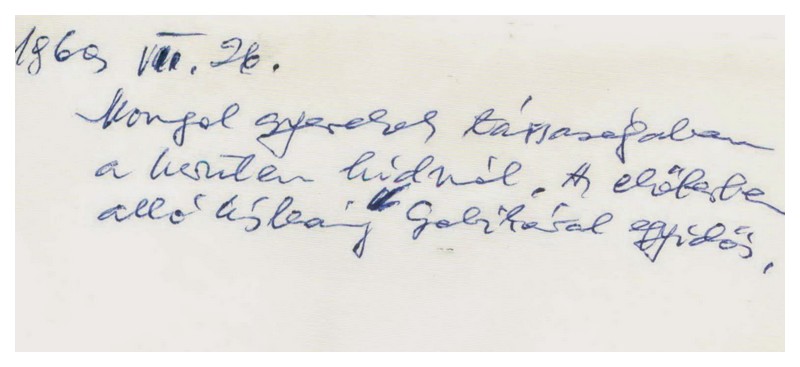 1969 VII. 26.
Mongol gyerekek társaságában
a kerulen hídnál. Az előtérben
álló kislány Gabikával egyidős.